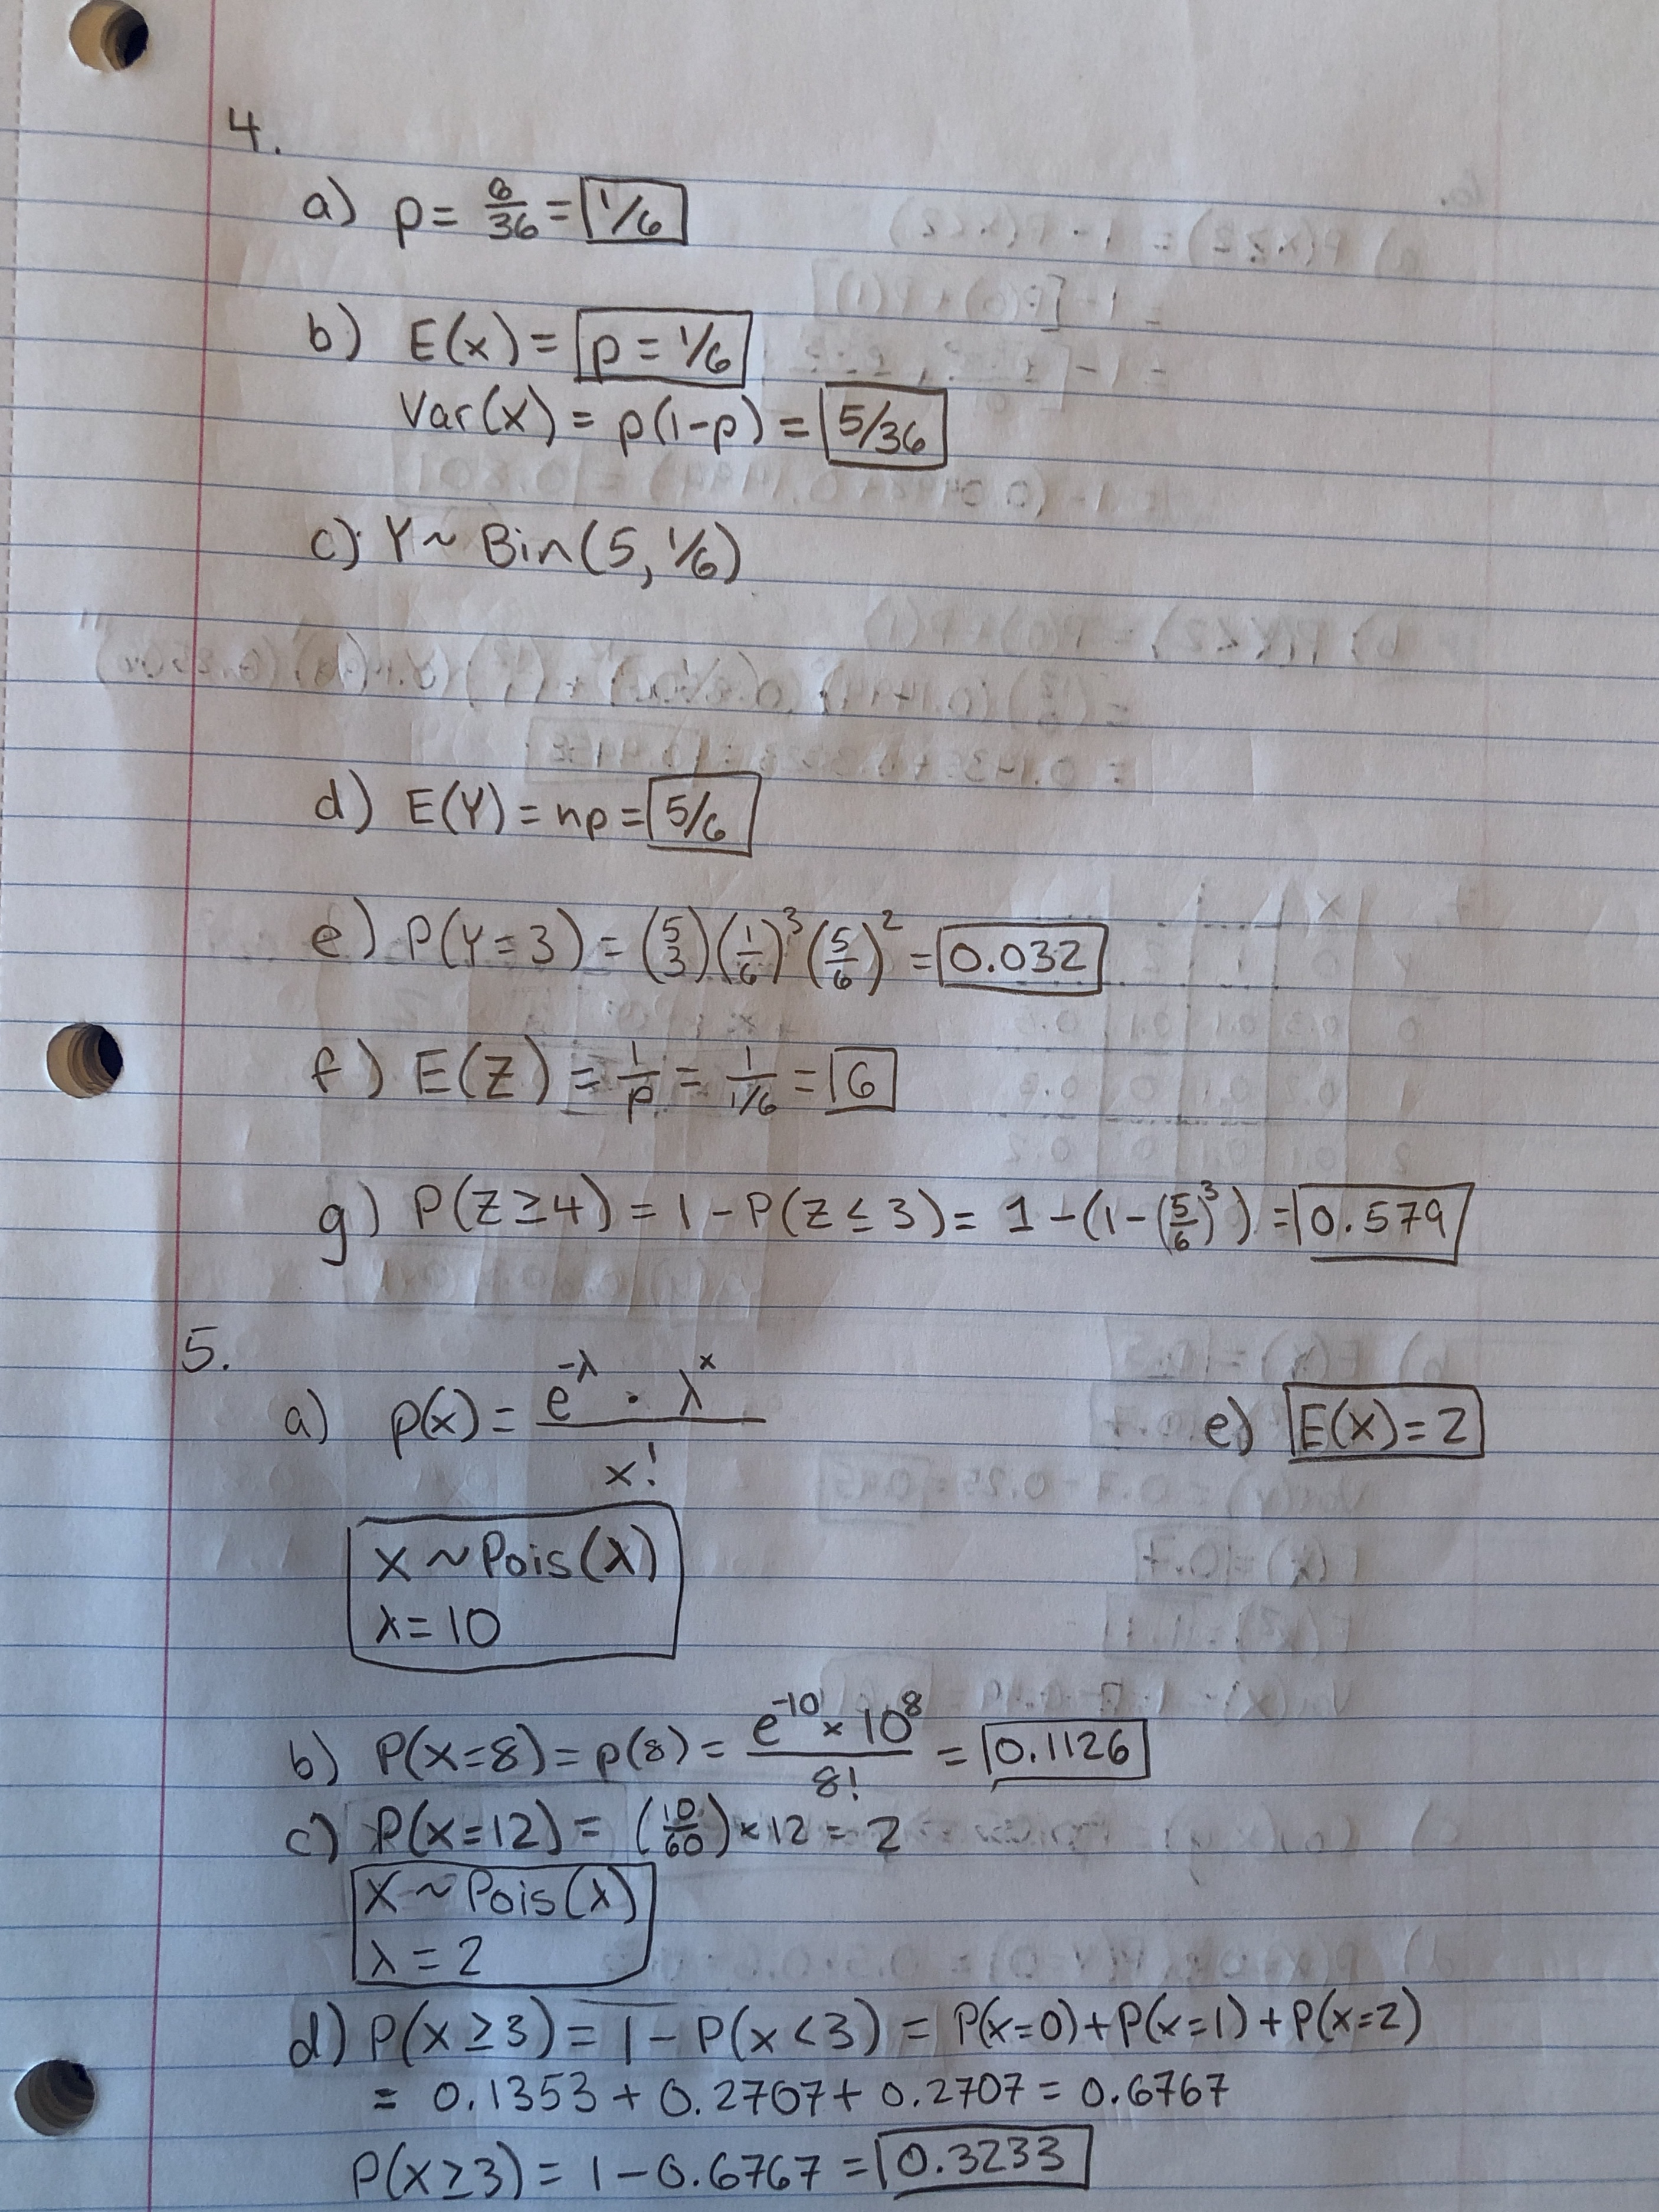 4.
a) p = 6/36 = 1/6
b) E(x) = p = 1/6
Var(x) = p(1-p) = 5/36
c) Y ~ Bin(5, 1/6)
d) E(Y) = np = 5/6
e) P(Y=3) = (5 3)(1/6)³(5/6)² = 0.032
f) E(Z) = 1/p = 1/1/6 = 6
g) P(Z≥4) = 1 - P(Z≤3) = 1 - (1-(5/6)³) = 0.579
5.
a) p(x) = e^-λ · λ^x / x!
x ~ Pois(λ)
λ = 10
b) P(x=8) = p(8) = e^-10 × 10^8 / 8! = 0.1126
c) P(x=12) = (10/60) × 12 = 2
X ~ Pois(λ)
λ = 2
d) P(x≥3) = 1 - P(x<3) = P(x=0) + P(x=1) + P(x=2)
= 0.1353 + 0.2707 + 0.2707 = 0.6767
P(x≥3) = 1 - 0.6767 = 0.3233
e) E(x) = 2